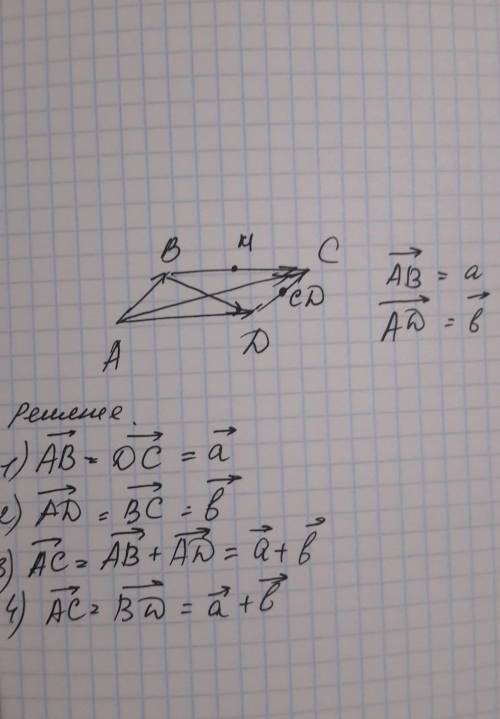 B М C
CD
A D
AB = a
AD = в
Решение.
1) AB = DC = a
2) AD = BC = в
3) AC = AB + AD = a + в
4) AC = BD = a + в